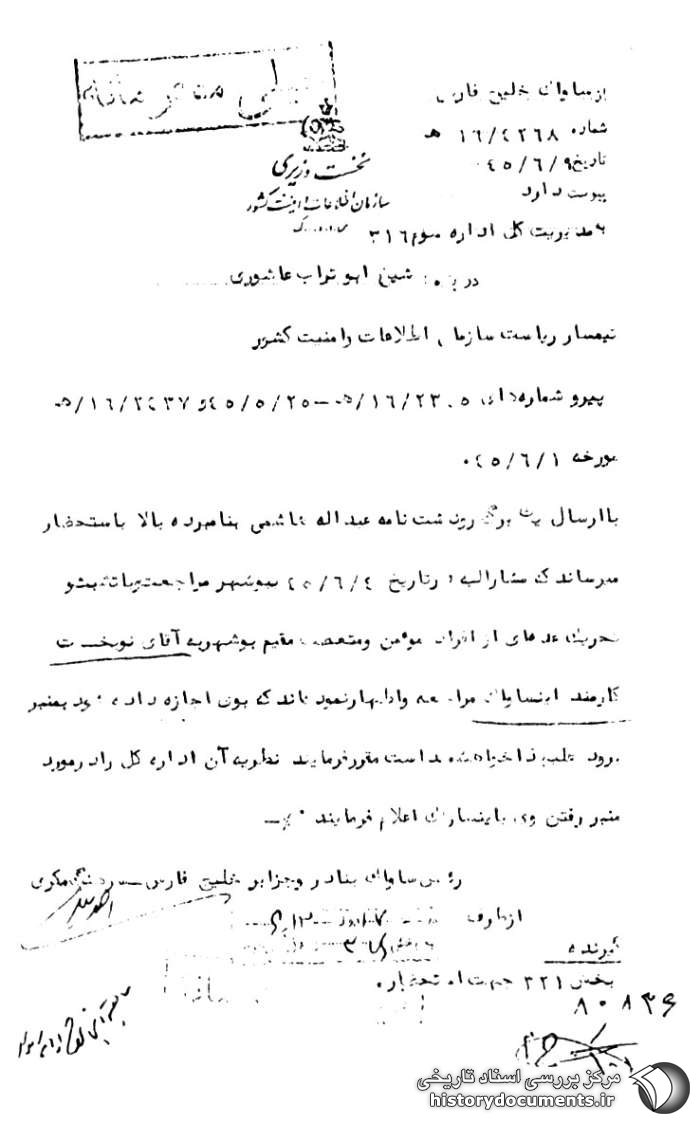 خیلی محرمانه
از ساواک خلیج فارس
شماره ۱۶/۴۲۶۸ هـ
تاریخ ۴۵/۶/۹
پیوست دارد
نخست وزیری
سازمان اطلاعات و امنیت کشور
به مدیریت کل اداره سوم ۳۱۶
درباره : شیخ ابو تراب عاشوری
تیمسار ریاست سازمان اطلاعات و امنیت کشور
پیرو شماره‌های
مورخه ۴۵/۶/۱
با ارسال یک برگ رونوشت نامه عبداله هاشمی بنامبرده بالا باستحضار
میرساند که مشارالیه در تاریخ ۴۵/۶/۴ ببوشهر مراجعت و با تشبث و
تحریک عده‌ای از افراد مومن و متعصب مقیم بوشهر به آقای نوبخت
کارمند اینساواک مراجعه و اظهار نموده‌اند که بوی اجازه داده شود بمنبر
برود علیهذا خواهشمند است مقرر فرمایند نظریه آن اداره کل را در مورد
منبر رفتن وی باینساواک اعلام فرمایند
رئیس ساواک بنادر و جزایر خلیج فارس
از طرف
گیرنده
بخش ۳۲۱ جهت استحضار.
۸۰۸۳۶
مرکز بررسی اسناد تاریخی
historydocuments.ir